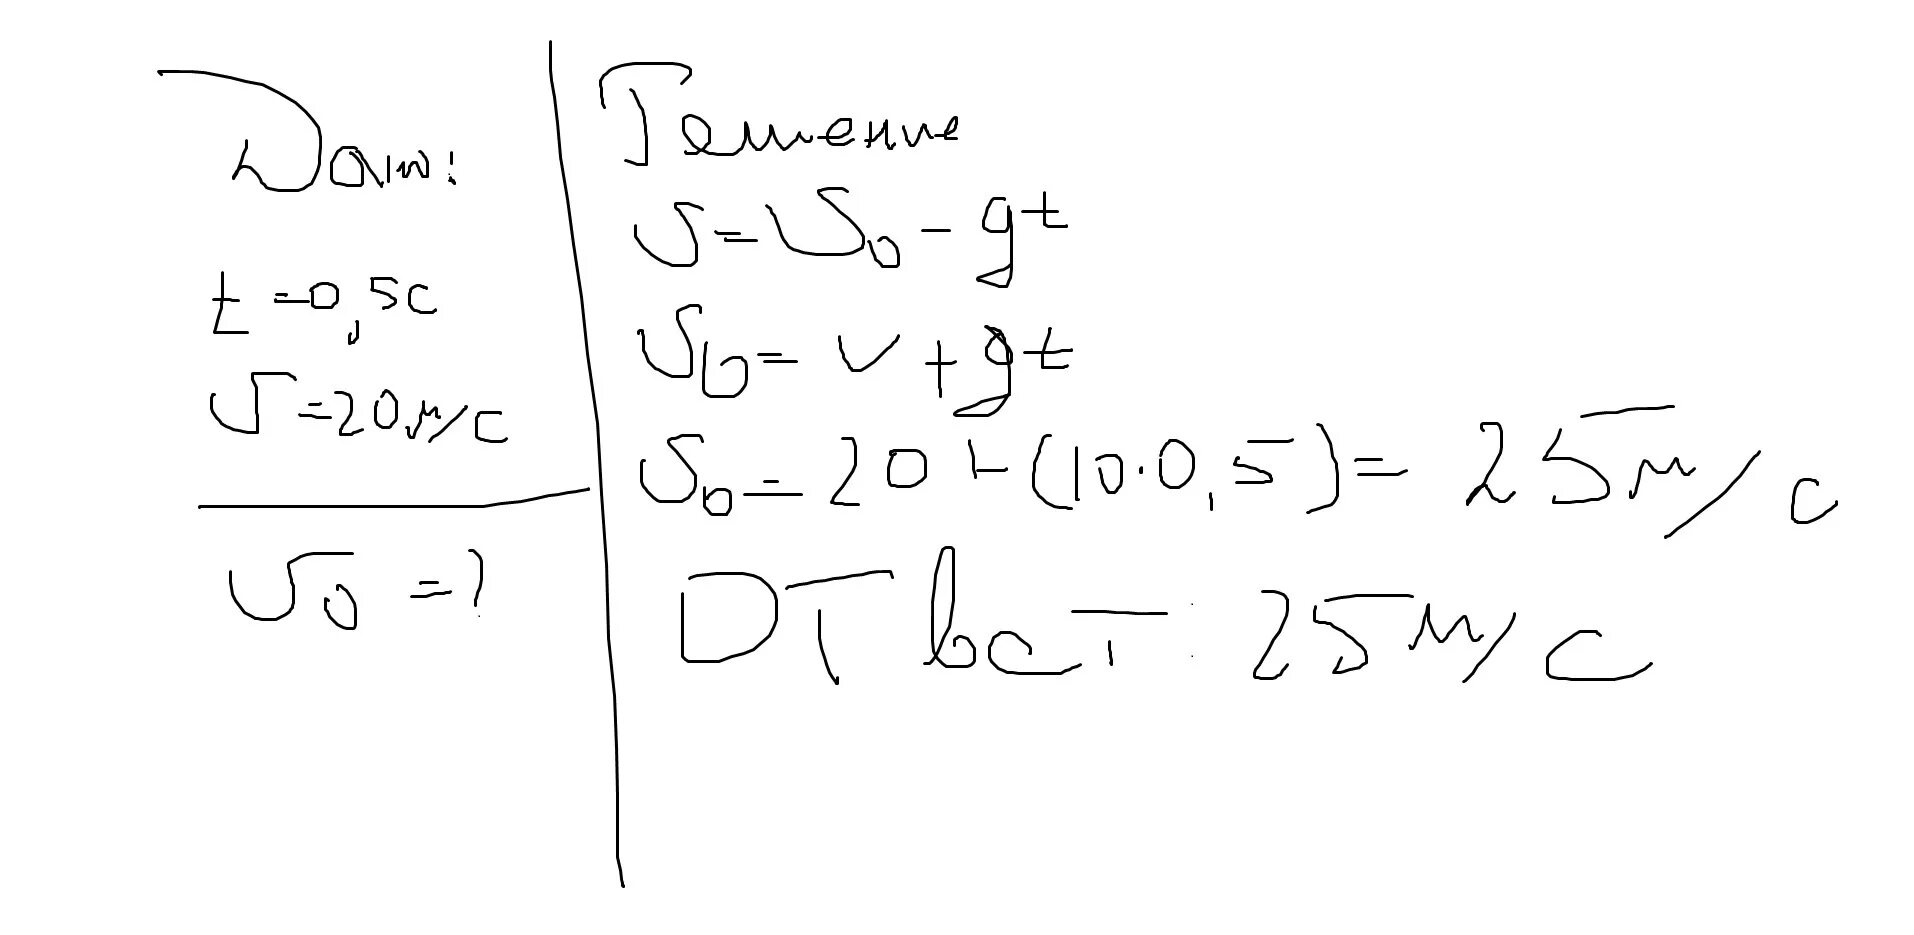 Дано:
t = 0,5с
v = 20м/с
v0 = ?
Решение
v = v0 - gt
v0 = v + gt
v0 = 20 + (10·0,5) = 25м/с
Ответ: 25м/с